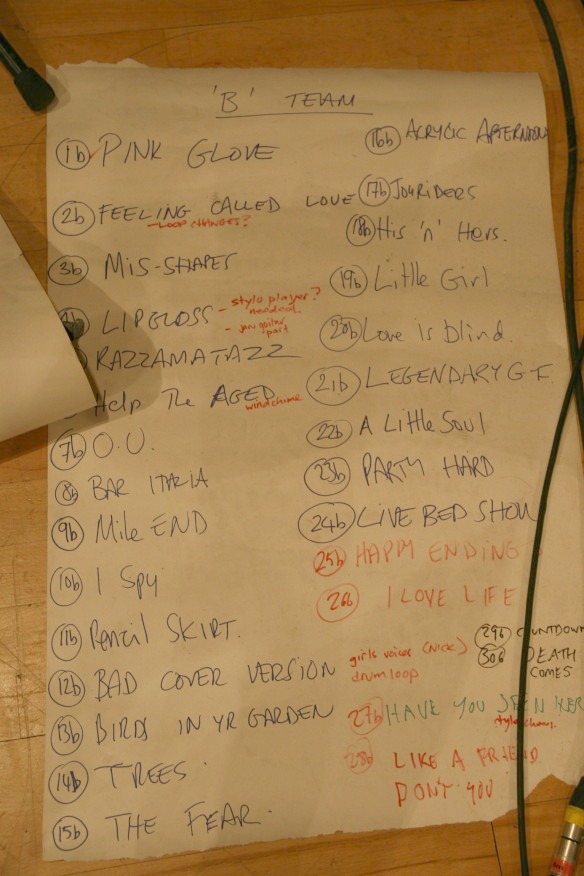 'B' TEAM
1b PINK GLOVE
2b FEELING CALLED LOVE
-LOOP CHANGES?
3b MIS-SHAPES
LIPGLOSS - stylo player?
needed.
- jan guitar
part
RAZZAMATAZZ
Help The AGED
windchime
7b O.U.
8b BAR ITALIA
9b Mile END
10b I Spy
11b Pencil SKIRT.
12b BAD COVER VERSION
girls voices (NICK)
drum loop
13b BIRDS IN YR GARDEN
14b TREES.
15b THE FEAR.
16b ACRYLIC AFTERNOON
17b JOYRIDERS
18b His 'n' Hers.
19b Little Girl
20b Love is blind.
21b LEGENDARY G.F.
22b A Little Soul
23b PARTY HARD
24b LIVE BED SHOW
25b HAPPY ENDING
26b I LOVE LIFE
29b COUNTDOWN
30b DEATH
COMES
27b HAVE YOU SEEN HER
28b LIKE A FRIEND
DON'T YOU